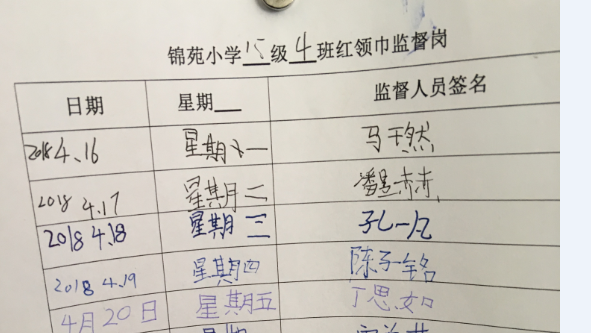 锦苑小学15级4班红领巾监督岗
日期 星期 监督人员签名
2018 4.16 星期一 马千然
2018 4.17 星期二 潘赫赫
2018 4.18 星期三 孔一凡
2018 4.19 星期四 陈子铭
4月20日 星期五 丁思如
星期